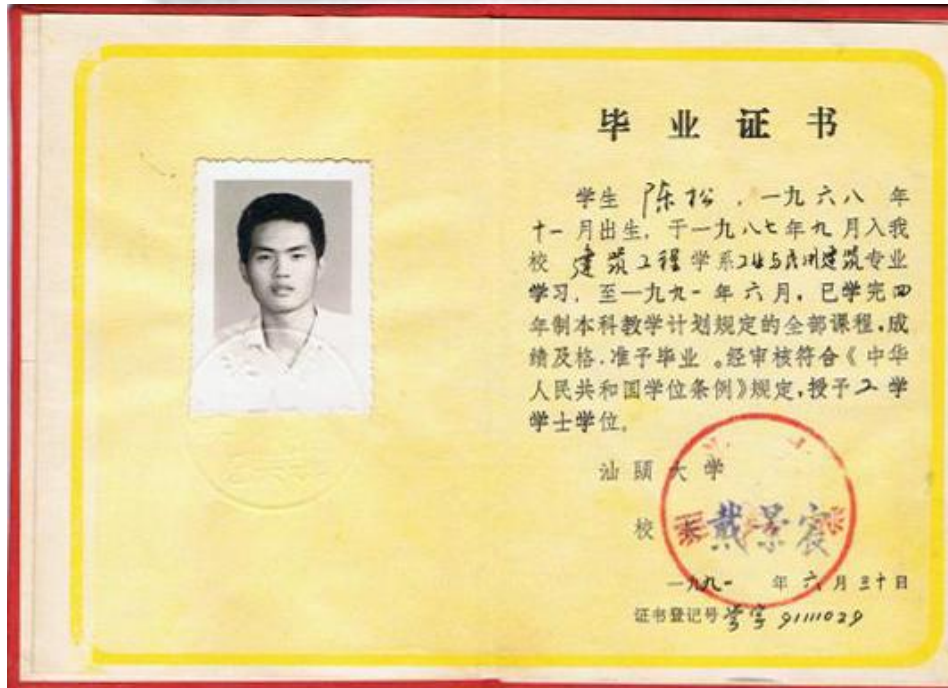 毕业证书
学生 陈松，一九六八 年
十一月出生，于一九八七年九月入我
校 建筑工程学系工业与民用建筑专业
学习，至一九九一年六月，已学完四
年制本科教学计划规定的全部课程，成
绩及格，准予毕业。经审核符合《中华
人民共和国学位条例》规定，授予工学
学士学位。
汕头大学
校
一九九一 年六月三十日
证书登记号 学字 9111029